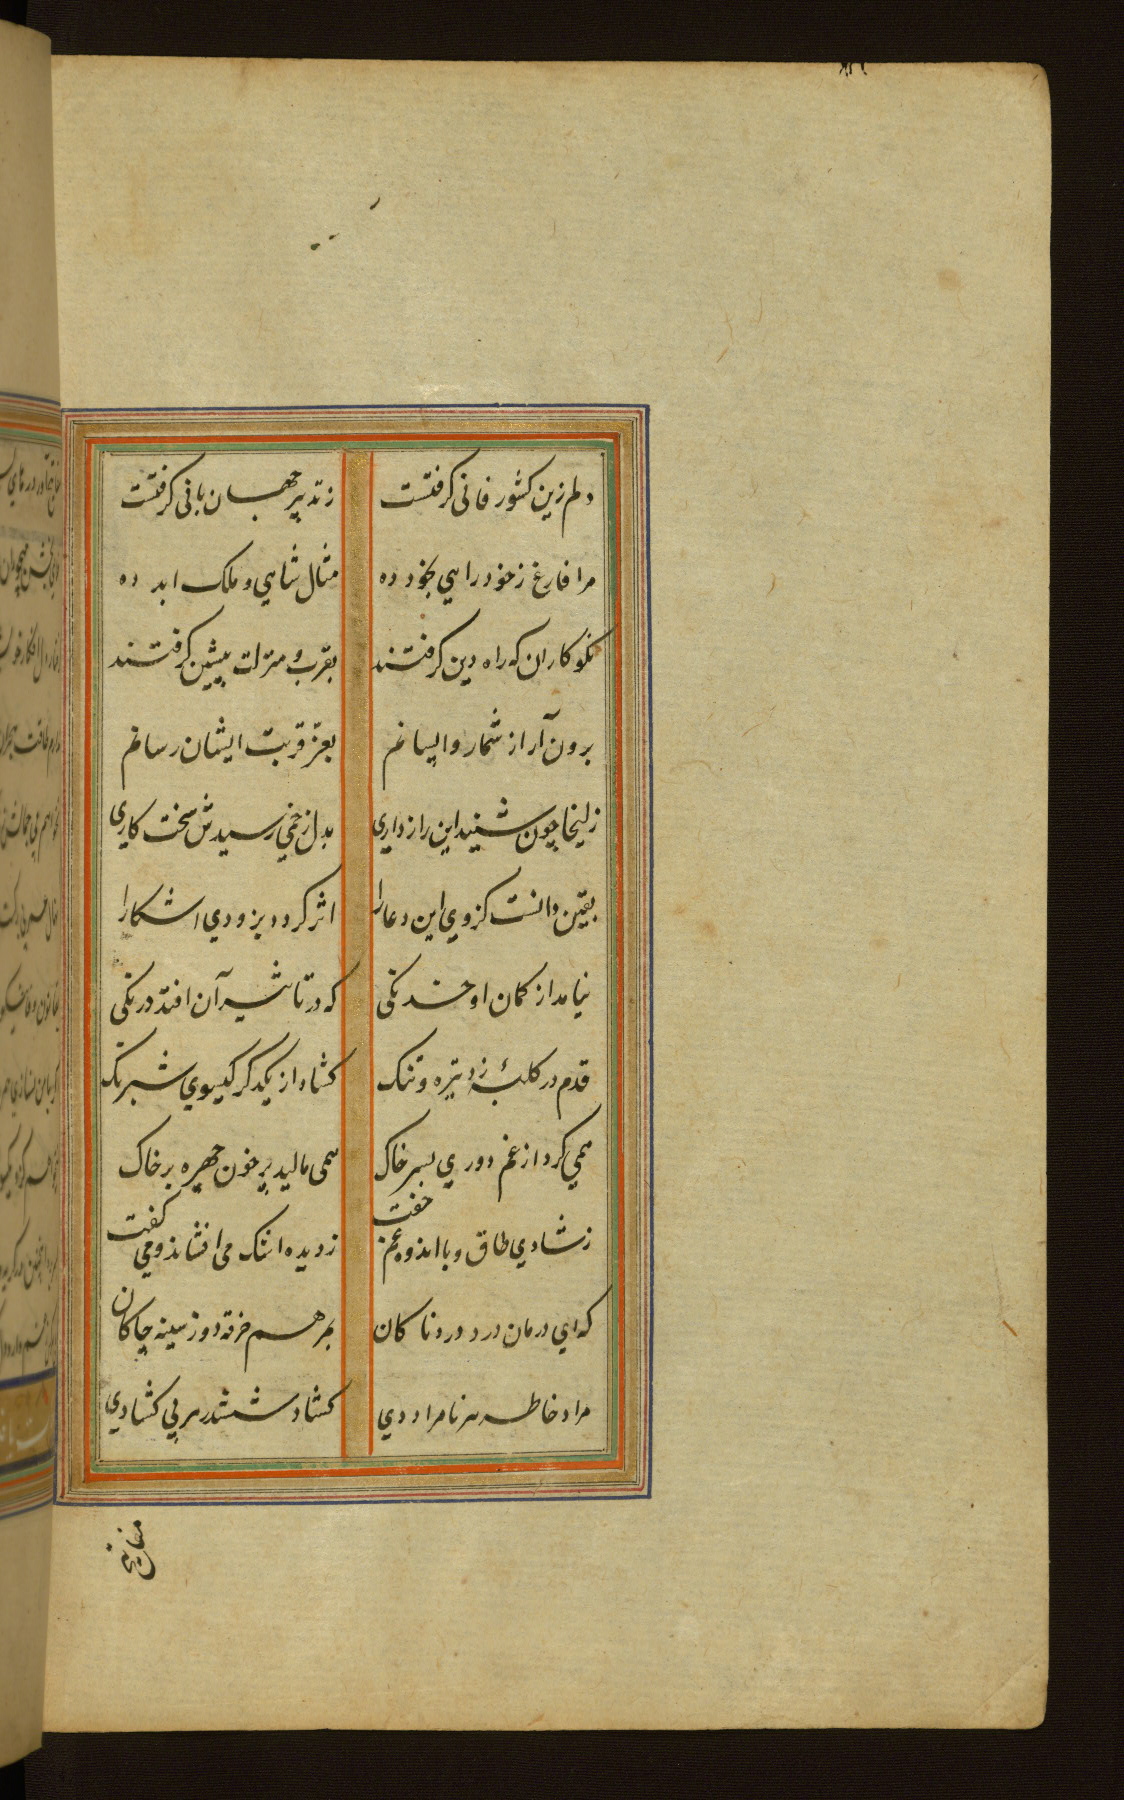 دلم زین کشور فانی کرفتست زتدبیر جهان بانی کرفتست
مرا فارغ زخود راهی بخود ده مثال شاهی و ملک ابد ده
نکو کاران که راه دین کرفتند بقرب و منزلت پیشین کرفتند
برون آر از شمار واپسانم بعز قربت ایشان رسانم
زلیخا چون شنید این راز داری بدل زخمی رسیدش سخت کاری
یقین دانست کزوی این دعا را اثر کردد بزودی اشکارا
نیامد از کمان او خدنکی که در تاثیر آن افتد درنکی
قدم در کلبهٔ زد تیره و تنک کشاد از یکدکر کیسوی شبرنک
همی کرد از غم دوری بسر خاک همی مالید پر خون چهره بر خاک
زشادی طاق و با اندوه و غم جفت زدیده اشک می افشاند و می کفت
که ای درمان درد دردناکان بمرهم خرقه دوز سینه چاکان
مراد خاطر هر نامرادی کشاد ششدر هر بی کشادی